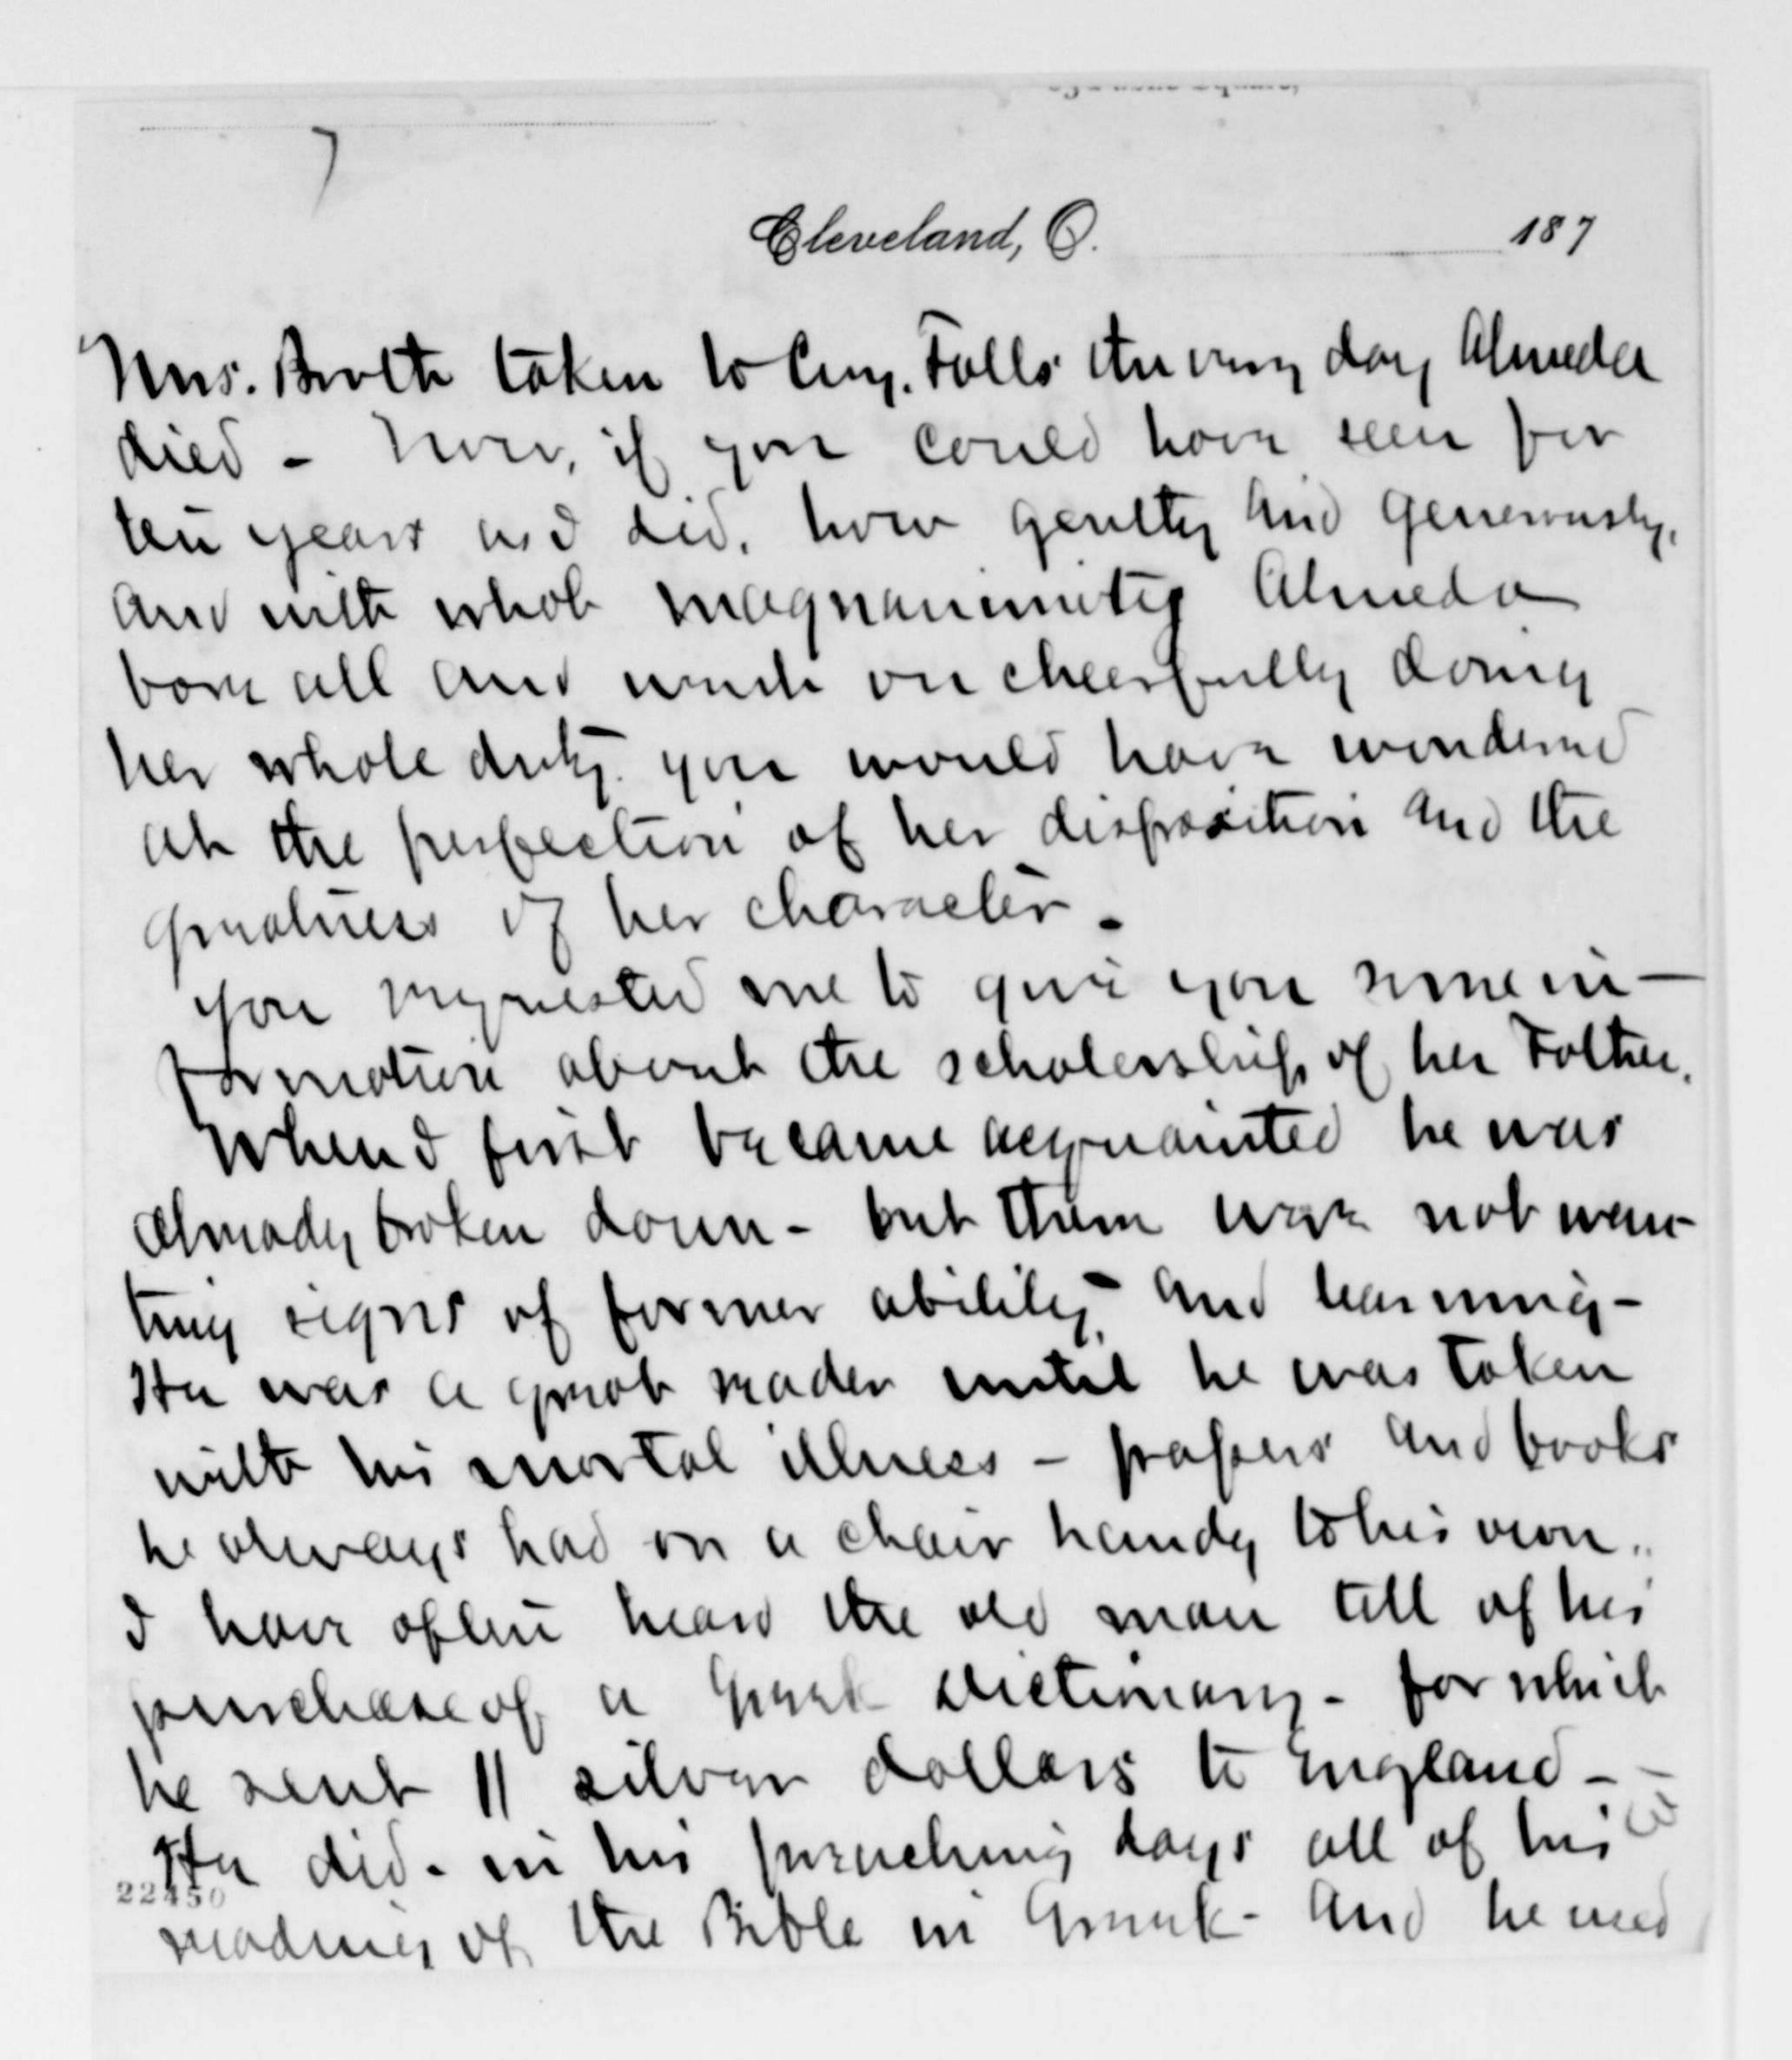 7
Cleveland, O. 187
Mrs. Booth taken to Cuy. Falls the very day Almeda
died - Now, if you could have seen for
ten years as I did, how gently and generously,
and with what magnanimity Almeda
bore all and went on cheerfully doing
her whole duty you would have wondered
at the perfection of her disposition and the
greatness of her character -
You requested me to give you some in-
formation about the scholarship of her Father.
When I first became acquainted he was
already broken down - but there were not wan-
ting signs of former ability, and learning -
He was a great reader until he was taken
with his mortal illness - papers and books
he always had on a chair handy to his own.
I have often heard the old man tell of his
purchase of a Greek Dictionary - for which
he sent 11 silver dollars to England -
He did - in his preaching days all of his
22450
reading of the Bible in Greek - and he used